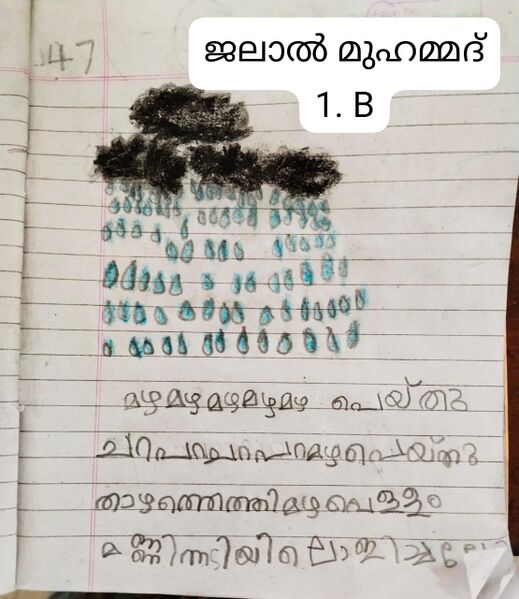 ജലാൽ മുഹമ്മദ്
1. B
47
മഴമഴമഴമഴമഴ പെയ്തു
ചറപറചറപറമഴപെയ്തു
താഴത്തെത്തിമഴവെള്ളം
മണ്ണിന്നടിയിലൊളിച്ചല്ലോ